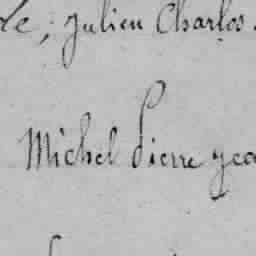 Julien Charles
Michel Pierre